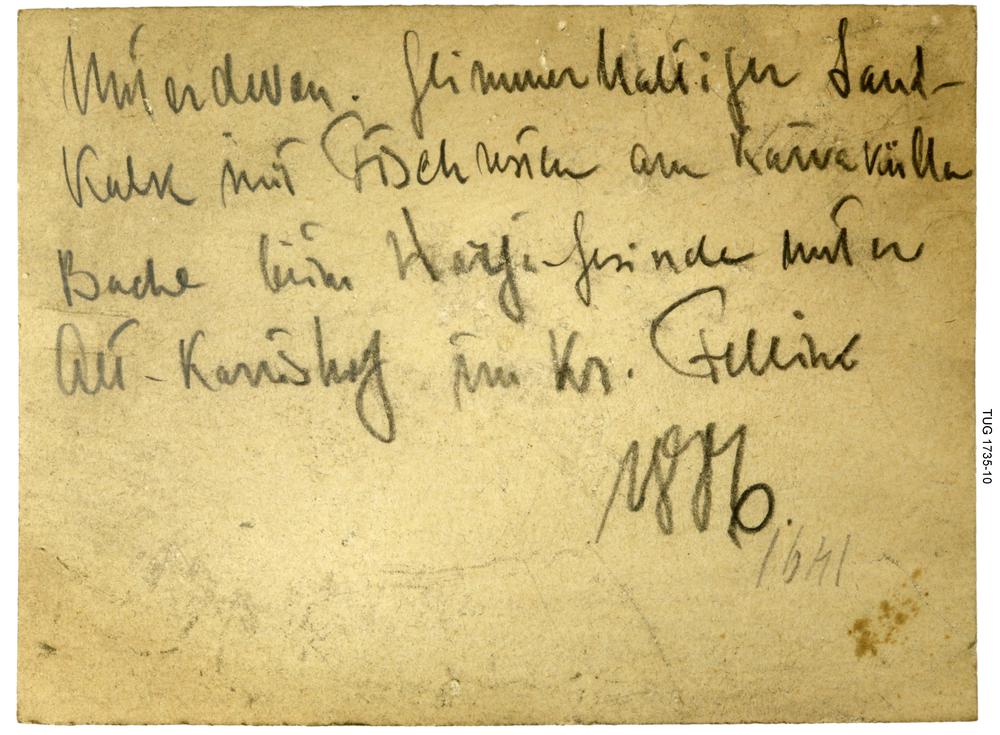 Unterdevon. Glimmerhaltiger Sand-
Kalk mit Fischresten am Karrakülla
Bache beim Harja-Gesinde unter
Alt-Karrishof im Kr. Fellin
1886.
1641
TUG 1735-10